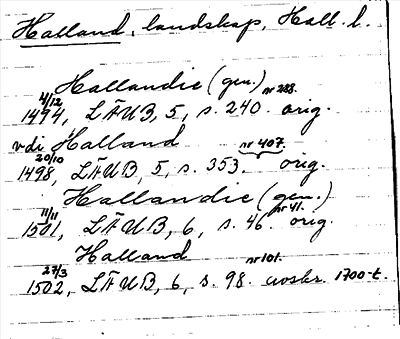 Halland, landskap, Hall. l.
Hallandie (gen.)
4/12 1494, LÄUB, 5, s. 240. nr 288. orig.
vdi Halland
20/10 1498, LÄUB, 5, s. 353. nr 407. orig.
Hallandie (gen.)
11/11 1501, LÄUB, 6, s. 46. nr 41. orig.
Halland
27/3 1502, LÄUB, 6, s. 98. nr 101. avskr. 1700-t.